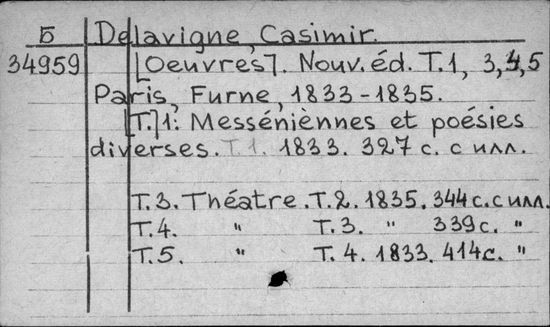 Б Delavigne, Casimir.
34959 [Oeuvres]. Nouv. éd. T.1, 3,4,5
Paris, Furne, 1833-1835.
[T.]1: Messéniènnes et poésies
diverses. T.1. 1833. 327 с. с илл.
T.3. Théatre. T.2. 1835. 344 с. с илл.
T.4. " T.3. " 339 с. "
T.5. " T.4. 1833. 414 с. "